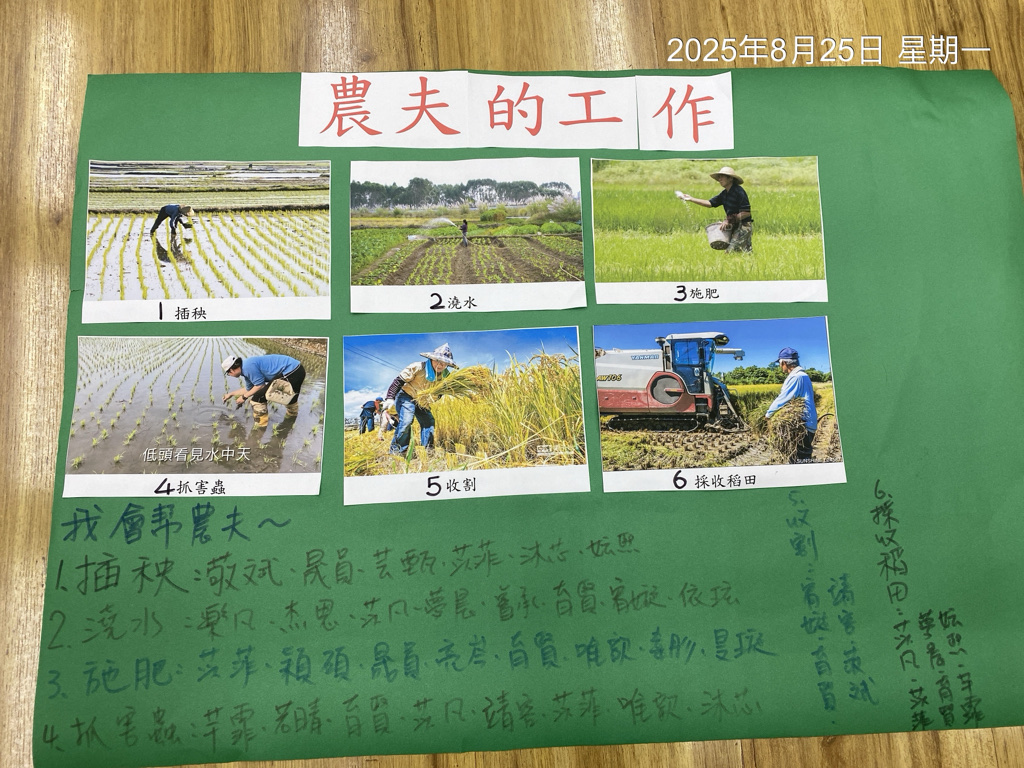 2025年8月25日 星期一
農夫的工作
1 插秧
2 澆水
3 施肥
低頭看見水中天
4 抓害蟲
YANMAR
AW706
5 收割
6 採收稻田
我會幫農夫～
1. 插秧:敬斌．晟員．芸甄．苡菲．沐芯．妘熙
2. 澆水:樂凡．杰恩．苡凡．夢晨．育賢．依玹
3. 施肥:苡菲．穎碩．晟員．亮岑．育賢．唯歆
4. 抓害蟲:芊霏．若晴．育賢．苡凡．靖容．苡菲 唯歆．沐芯
5. 收割:育賢．
靖容．敬斌
6. 採收稻田:苡凡．苡菲
妘熙．芊霏
育賢